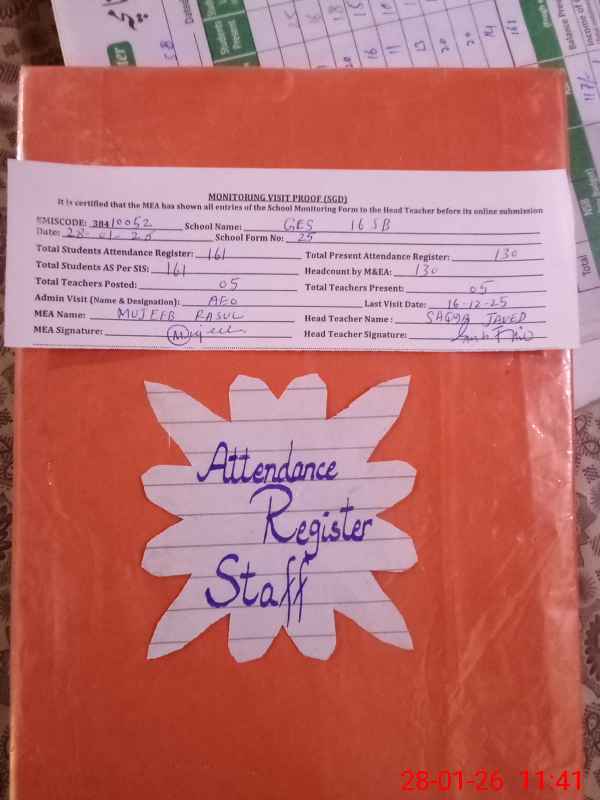 Students
Present
16
11
13
20
20
14
161
Balance Pre
Income of
MONITORING VISIT PROOF (SGD)
It is certified that the MEA has shown all entries of the School Monitoring Form to the Head Teacher before its online submission
EMISCODE: 38410052 School Name: GES 16 SB
Date: 28-01-25 School Form No: 25
Total Students Attendance Register: 161 Total Present Attendance Register: 130
Total Students AS Per SIS: 161 Headcount by M&EA: 130
Total Teachers Posted: 05 Total Teachers Present: 05
Admin Visit (Name & Designation): AEO Last Visit Date: 16-12-25
MEA Name: MUJEEB RASUL Head Teacher Name: SAQIB JAVED
MEA Signature: Mujeeb Head Teacher Signature:
Attendance
Register
Staff
28-01-26 11:41